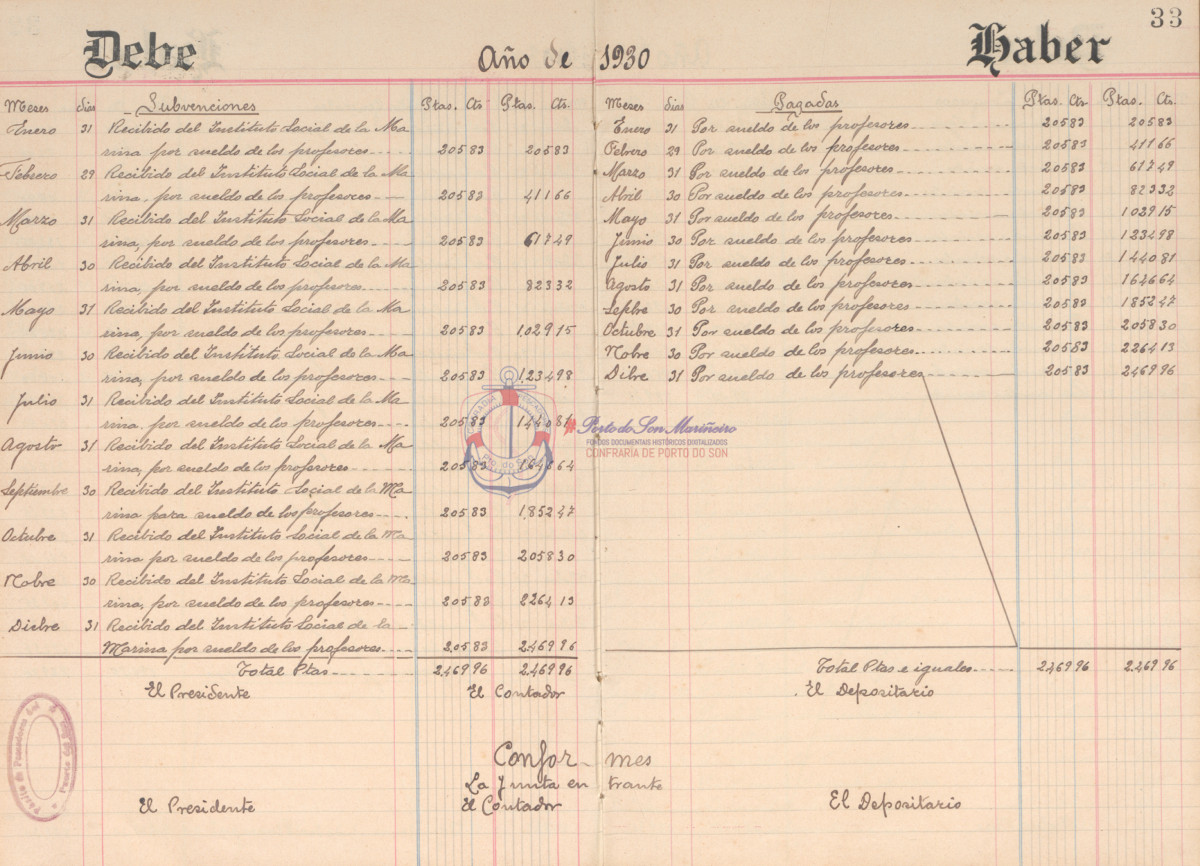 33
Debe Año de 1930 Haber
Meses días Subvenciones Ptas. Cts Ptas. Cts.
Enero 31 Recibido del Instituto Social de la Ma
rina por sueldo de los profesores 205 83 205 83
Febrero 29 Recibido del Instituto Social de la Ma
rina, por sueldo de los profesores 205 83 411 66
Marzo 31 Recibido del Instituto Social de la Ma
rina, por sueldo de los profesores 205 83 617 49
Abril 30 Recibido del Instituto Social de la Ma
rina, por sueldo de los profesores 205 83 823 32
Mayo 31 Recibido del Instituto Social de la Ma
rina, por sueldo de los profesores 205 83 1,029 15
Junio 30 Recibido del Instituto Social de la Ma
rina, por sueldo de los profesores 205 83 1,234 98
Julio 31 Recibido del Instituto Social de la Ma
rina, por sueldo de los profesores 205 83 1,440 81
Agosto 31 Recibido del Instituto Social de la Ma
rina, por sueldo de los profesores 205 83 1,646 64
Septiembre 30 Recibido del Instituto Social de la Ma
rina para sueldo de los profesores 205 83 1,852 47
Octubre 31 Recibido del Instituto Social de la Ma
rina por sueldo de los profesores 205 83 2058 30
Nobre 30 Recibido del Instituto Social de la Ma
rina, por sueldo de los profesores 205 83 2264 13
Dicbre 31 Recibido del Instituto Social de la
Marina por sueldo de los profesores 205 83 2,469 96
Total Ptas 2,469 96 2,469 96
El Presidente El Contador
Meses días Pagadas Ptas. Cts. Ptas. Cts.
Enero 31 Por sueldo de los profesores 205 83 205 83
Febrero 29 Por sueldo de los profesores 205 83 411 66
Marzo 31 Por sueldo de los profesores 205 83 617 49
Abril 30 Por sueldo de los profesores 205 83 823 32
Mayo 31 Por sueldo de los profesores 205 83 1029 15
Junio 30 Por sueldo de los profesores 205 83 1234 98
Julio 31 Por sueldo de los profesores 205 83 1440 81
Agosto 31 Por sueldo de los profesores 205 83 1646 64
Sepbre 30 Por sueldo de los profesores 205 83 1852 47
Octubre 31 Por sueldo de los profesores 205 83 2058 30
Nobre 30 Por sueldo de los profesores 205 83 2264 13
Dibre 31 Por sueldo de los profesores 205 83 2469 96
Total Ptas e iguales 2,469 96 2,469 96
El Depositario
Confor- mes
La Junta en trante
El Presidente El Contador El Depositario
Porto do Son Mariñeiro
FONDOS DOCUMENTAIS HISTÓRICOS DIXITALIZADOS
CONFRARÍA DE PORTO DO SON